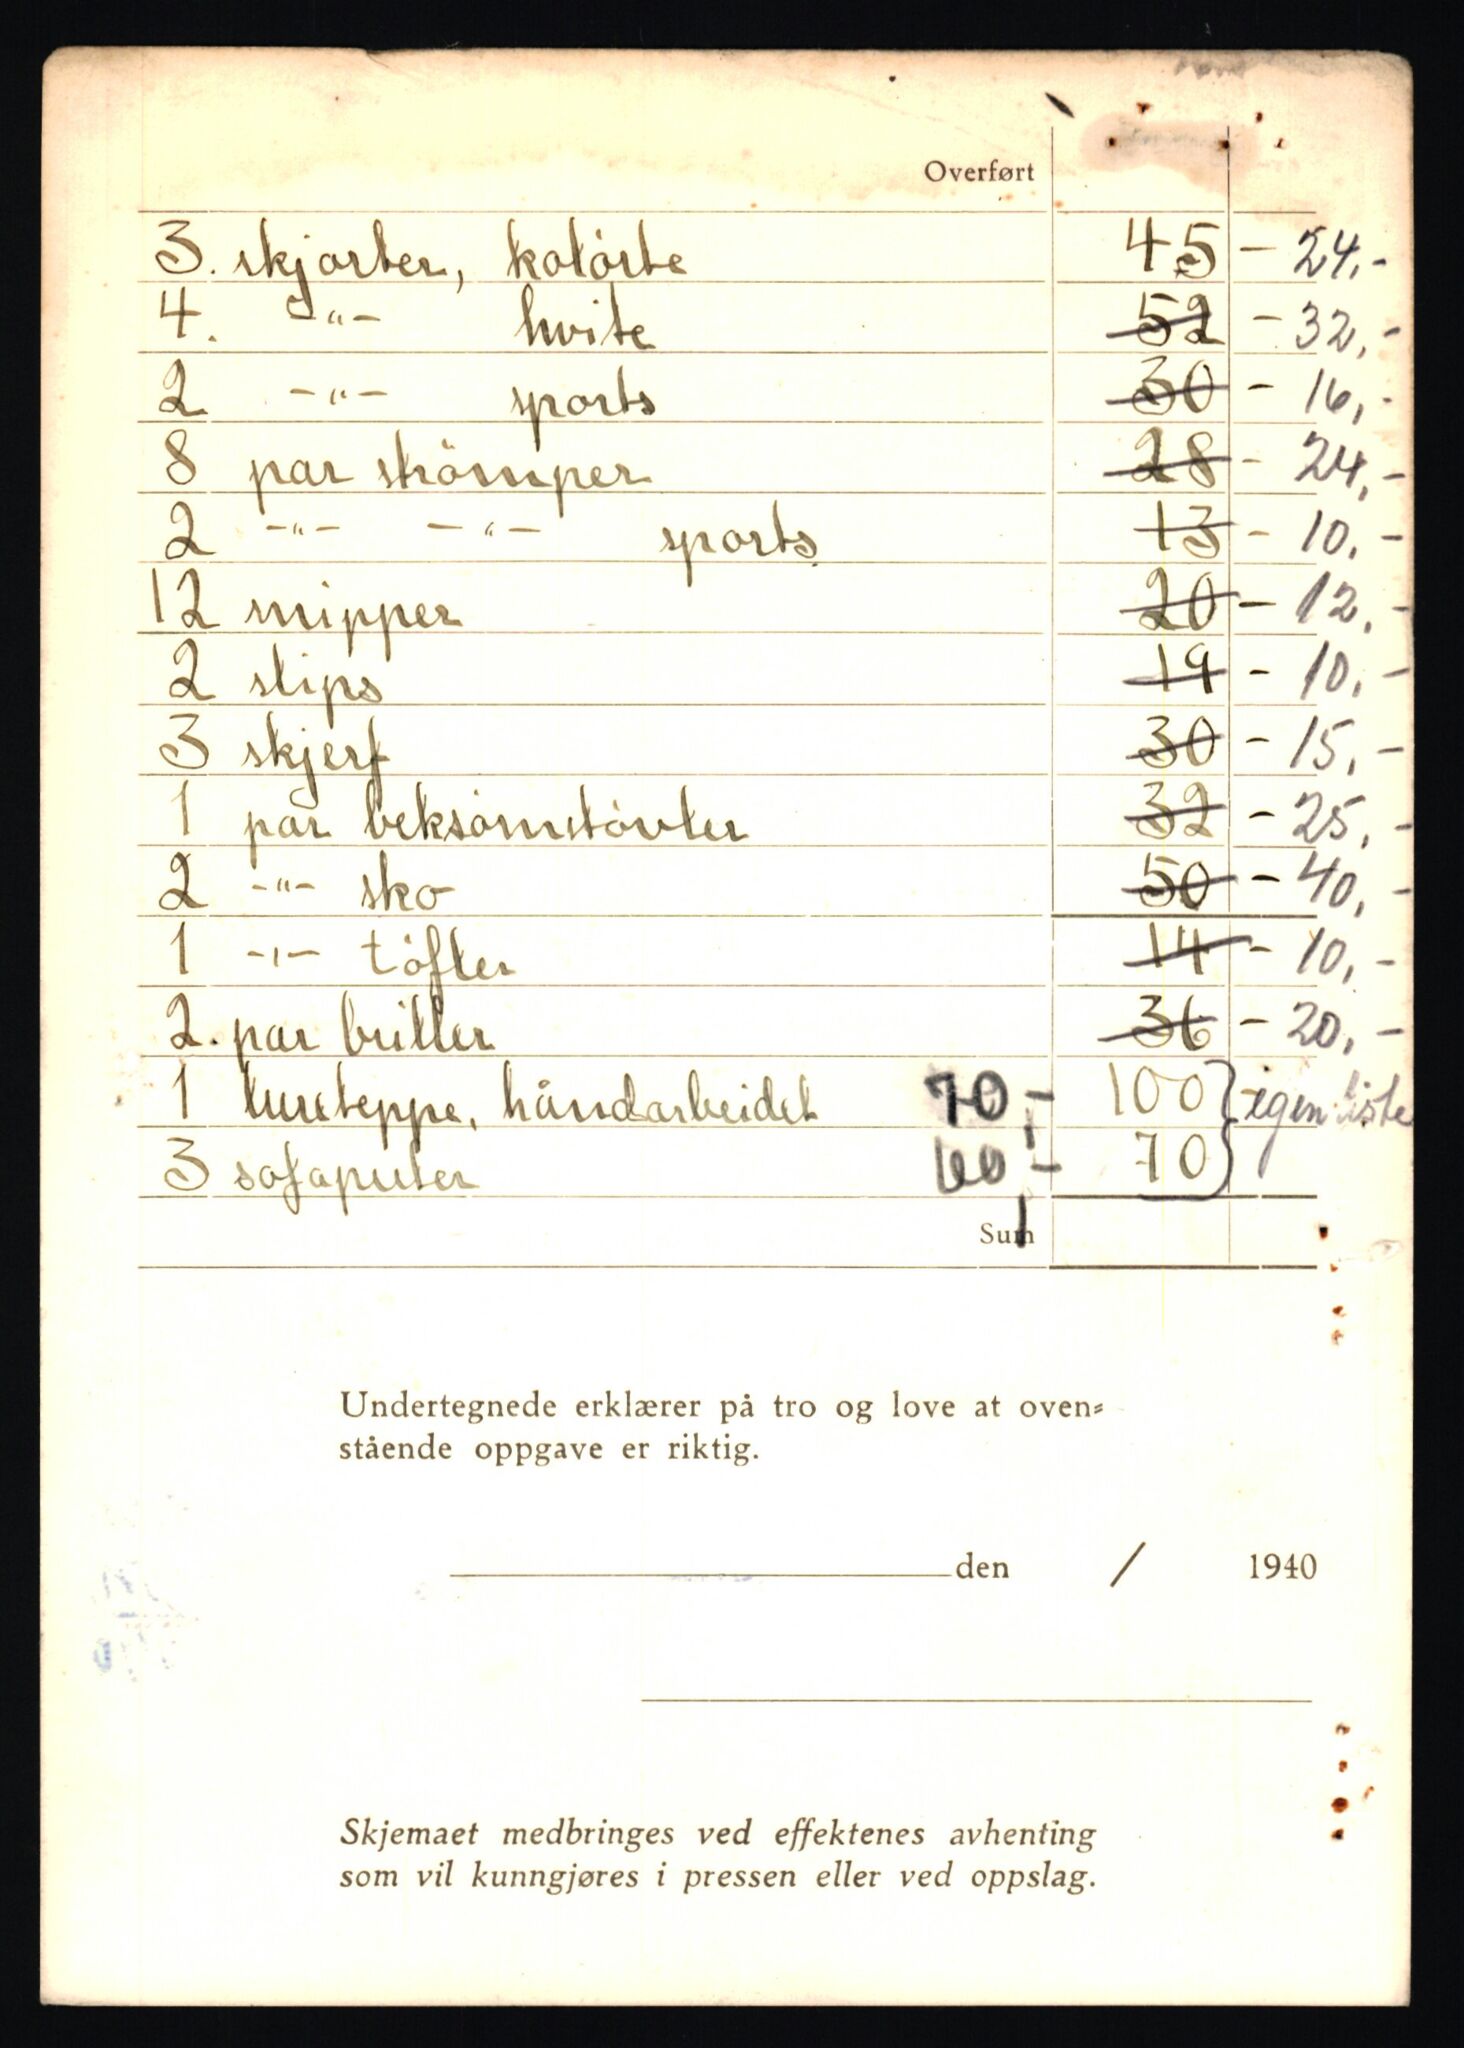 Overført
3. skjorter, kolørte 45 - 24,-
4. -"- hvite 52 - 32,-
2 -"- sports 30 - 16,-
8 par strömper 28 - 24,-
2 -"- -"- sports 13 - 10,-
12 snipper 20 - 12,-
2 slips 19 - 10,-
3 skjerf 30 - 15,-
1 par beksömstövler 32 - 25,-
2 -"- sko 50 - 40,-
1 -"- töfler 14 - 10,-
2. par briller 36 - 20,-
1 lureteppe, håndarbeidet 70,- 100 } egen liste
3 sofaputer 60,- 70
Sum
Undertegnede erklærer på tro og love at oven-
stående oppgave er riktig.
den / 1940
Skjemaet medbringes ved effektenes avhenting
som vil kunngjøres i pressen eller ved oppslag.